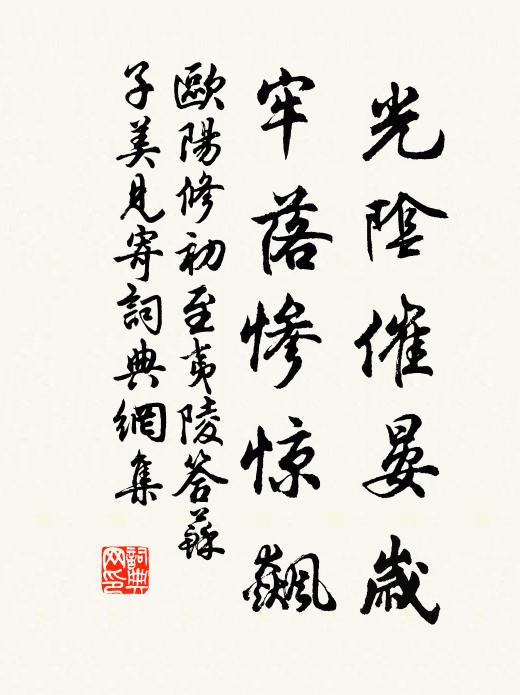 光陰催晏歲
牢落慘惊飆
歐陽修初至夷陵答蘇
子美見寄詞典網集
詞典网印